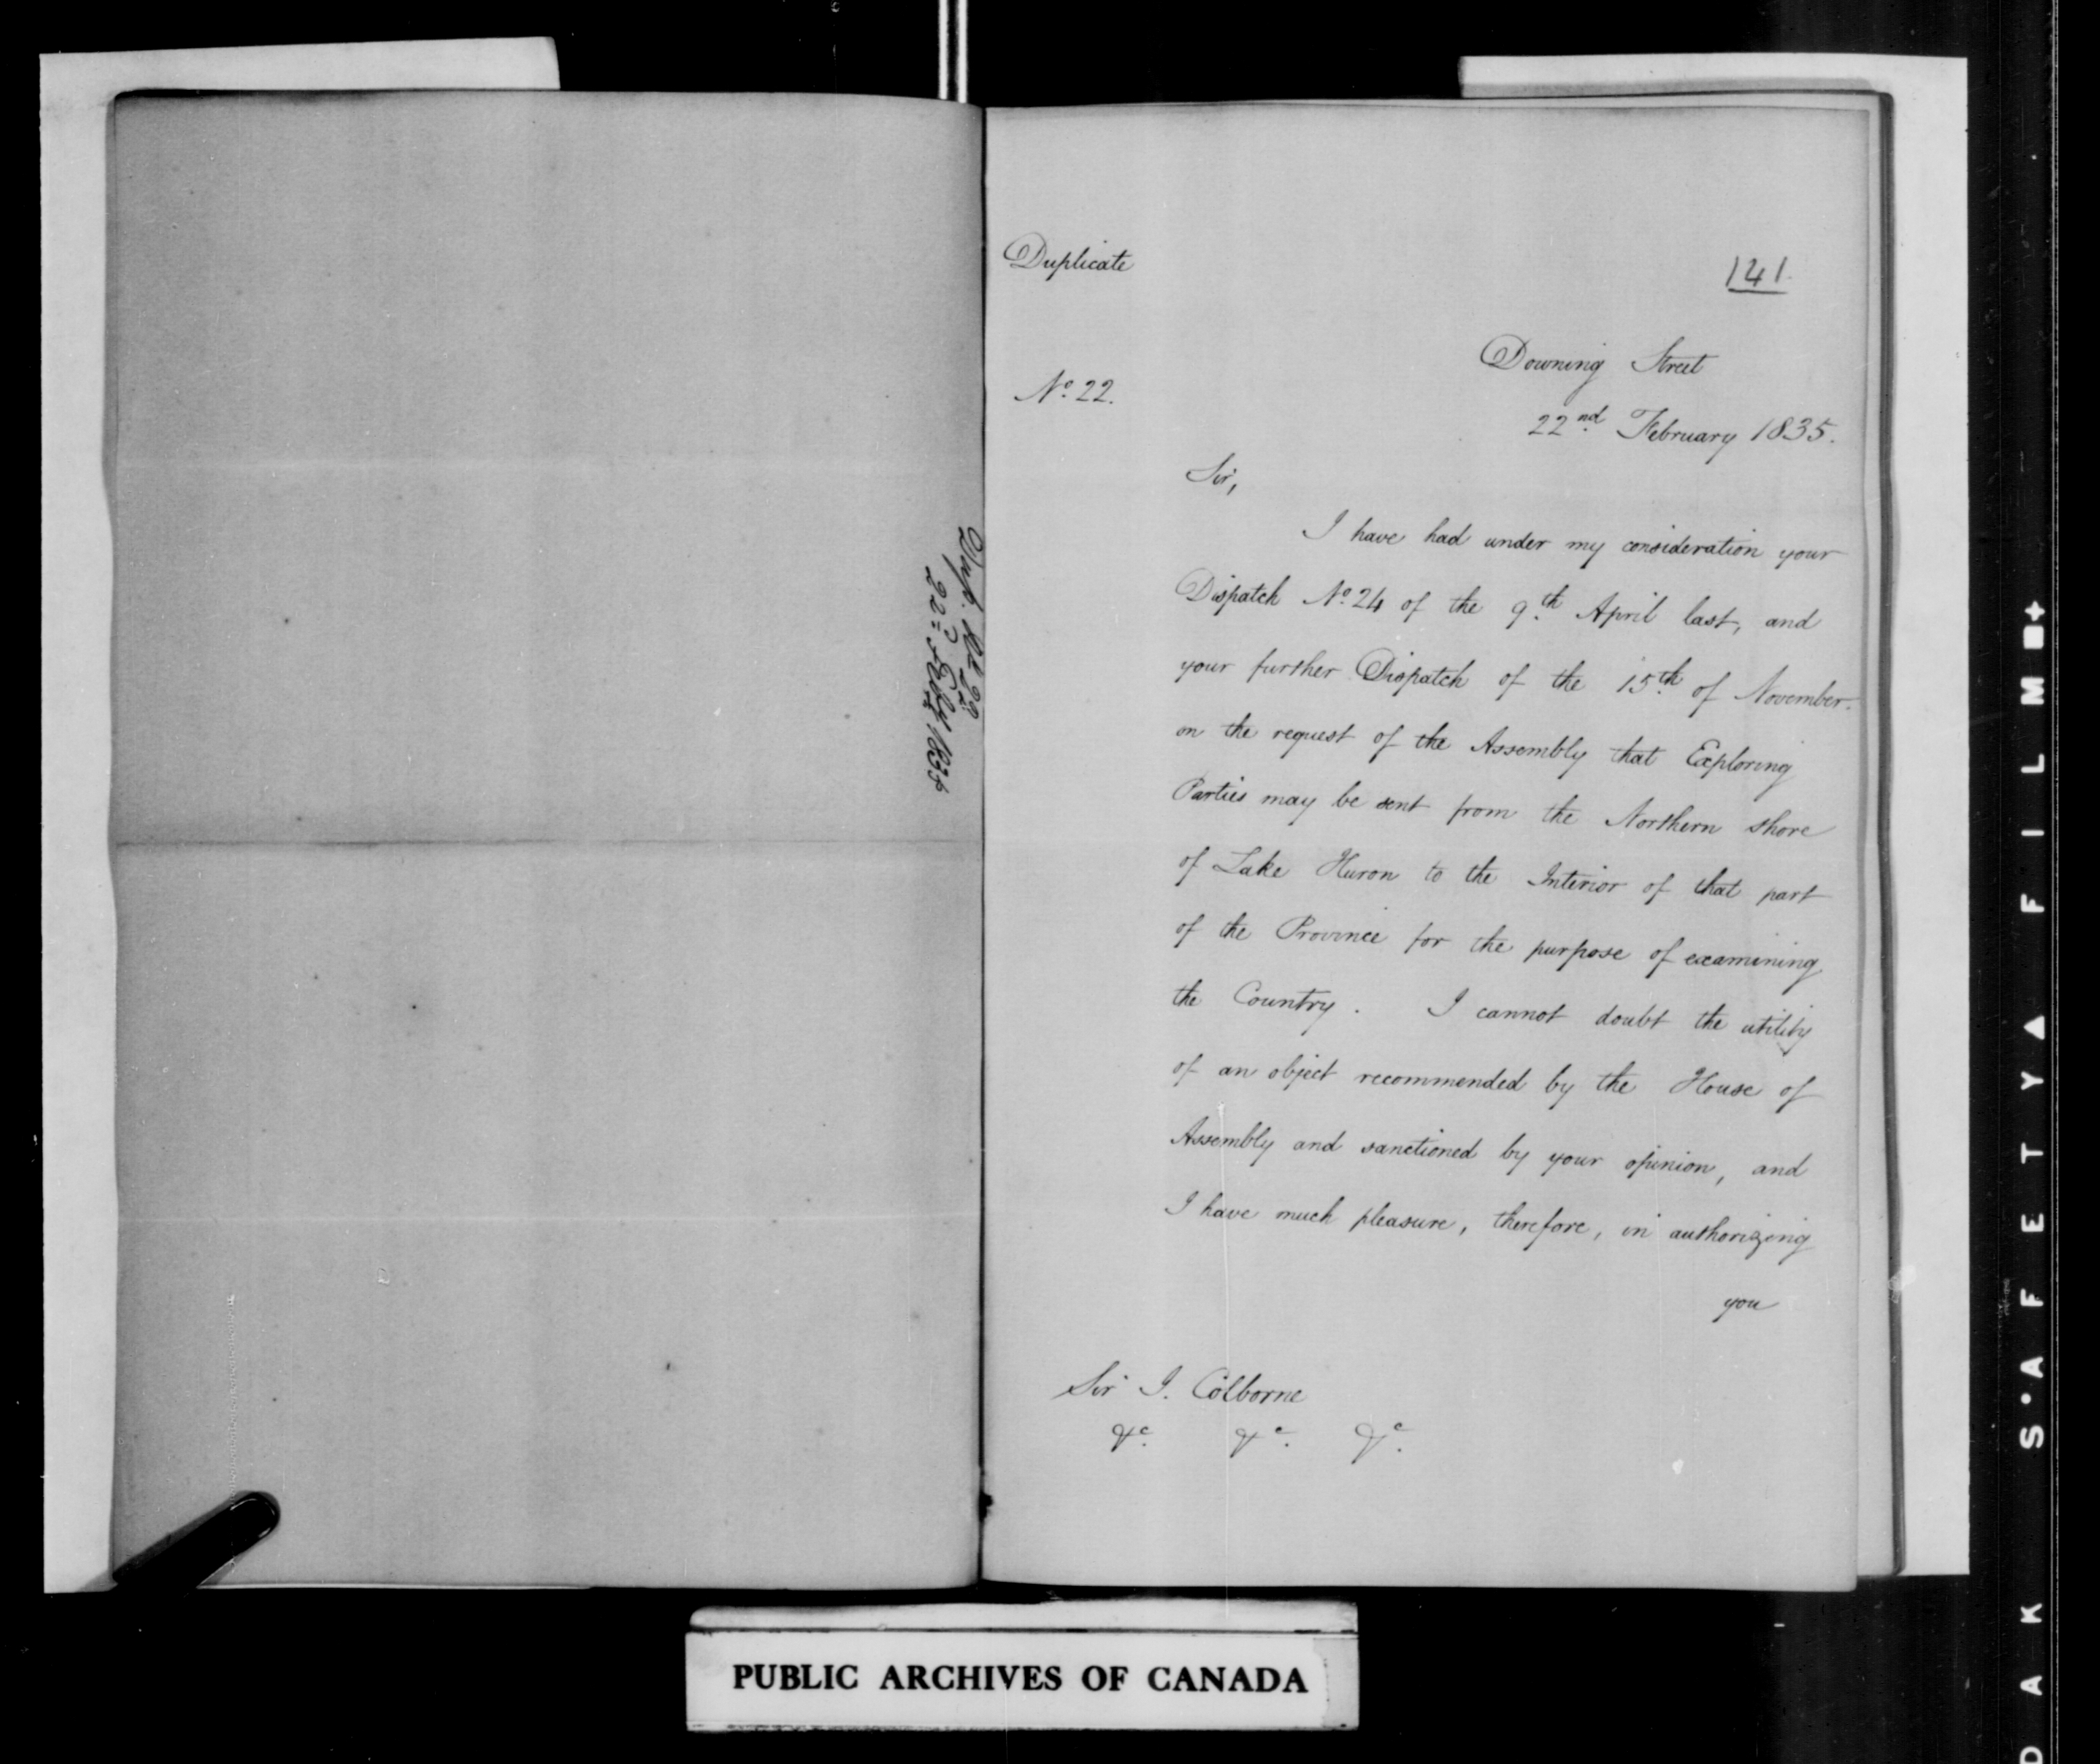 Dup. No. 22
22d Feby. 1835
Duplicate
141.
No. 22.
Downing Street
22nd February 1835.
Sir,
I have had under my consideration your
Dispatch No. 24 of the 9th April last, and
your further Dispatch of the 15th of November.
on the request of the Assembly that Exploring
Parties may be sent from the Northern shore
of Lake Huron to the Interior of that part
of the Province for the purpose of examining
the Country. I cannot doubt the utility
of an object recommended by the House of
Assembly and sanctioned by your opinion, and
I have much pleasure, therefore, in authorizing
you
Sir J. Colborne
&c. &c. &c.
PUBLIC ARCHIVES OF CANADA
DAK S'AFETY▲FILM■+